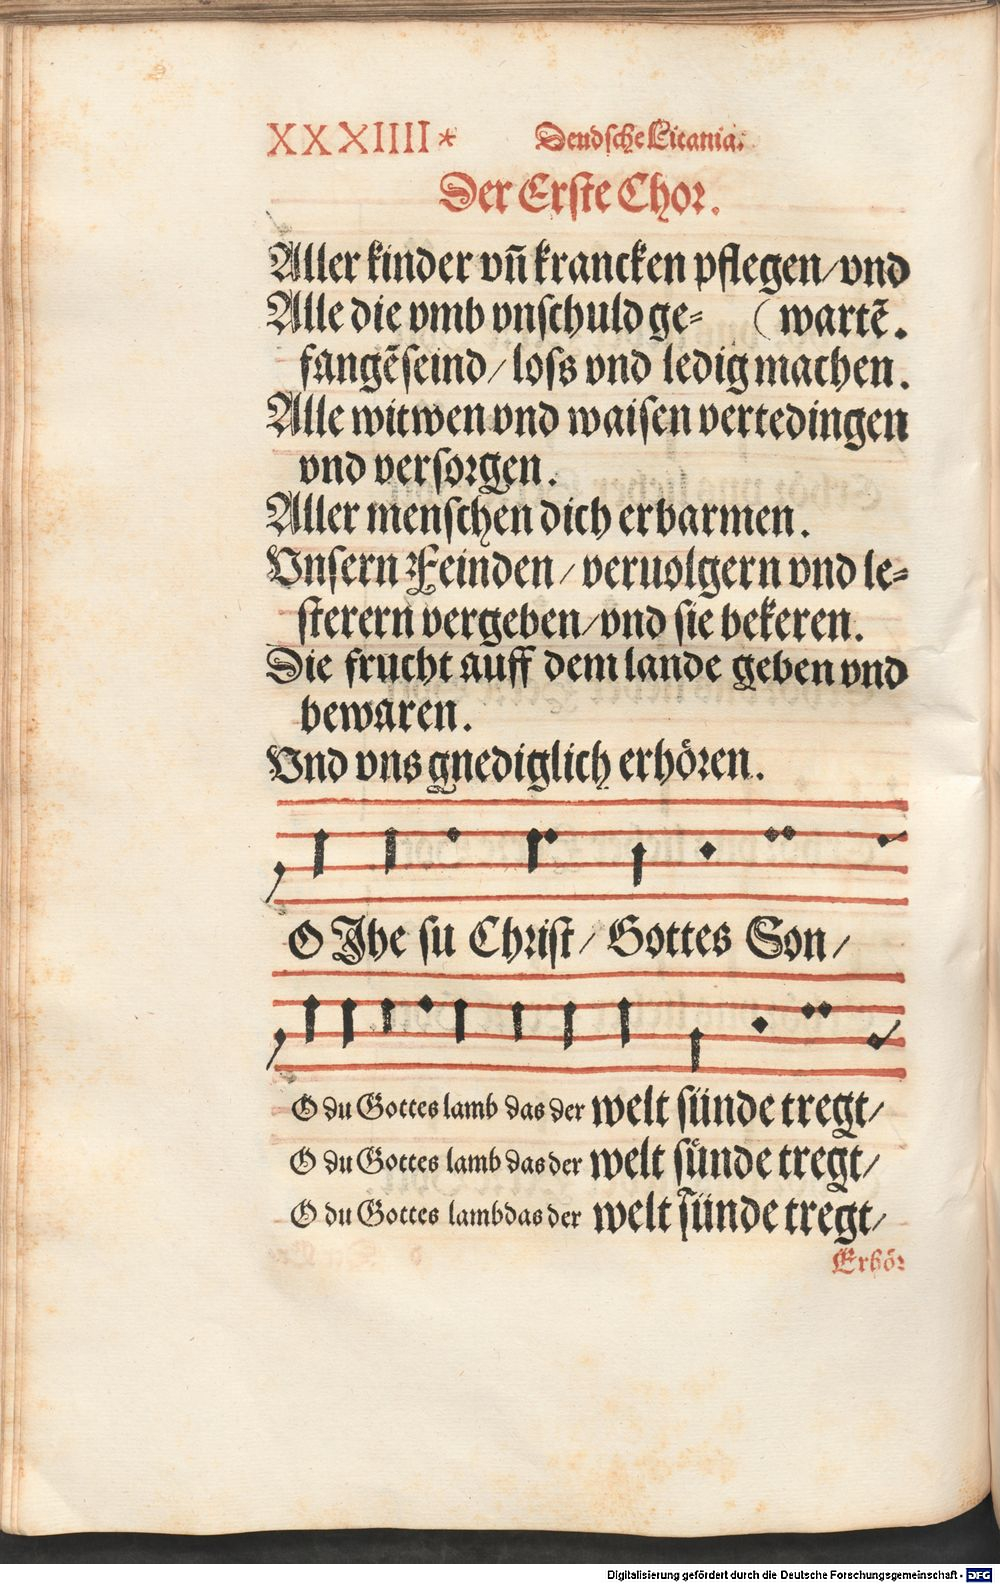 XXXIIII* Deudsche Litania.
Der Erste Chor.
Aller kinder vñ krancken pflegen/vnd
Alle die vmb vnschuld ge= (wartẽ.
fangẽ seind/ loss vnd ledig machen.
Alle witwen vnd waisen vertedingen
vnd versorgen.
Aller menschen dich erbarmen.
Vnsern Feinden/ veruolgern vnd le=
sterern vergeben/vnd sie bekeren.
Die frucht auff dem lande geben vnd
bewaren.
Vnd vns gnediglich erhören.
O Jhe su Christ/ Gottes Son/
O du Gottes lamb das der welt sünde tregt/
O du Gottes lamb das der welt sünde tregt/
O du Gottes lamb das der welt sünde tregt/
Erhör
Digitalisierung gefördert durch die Deutsche Forschungsgemeinschaft - DFG